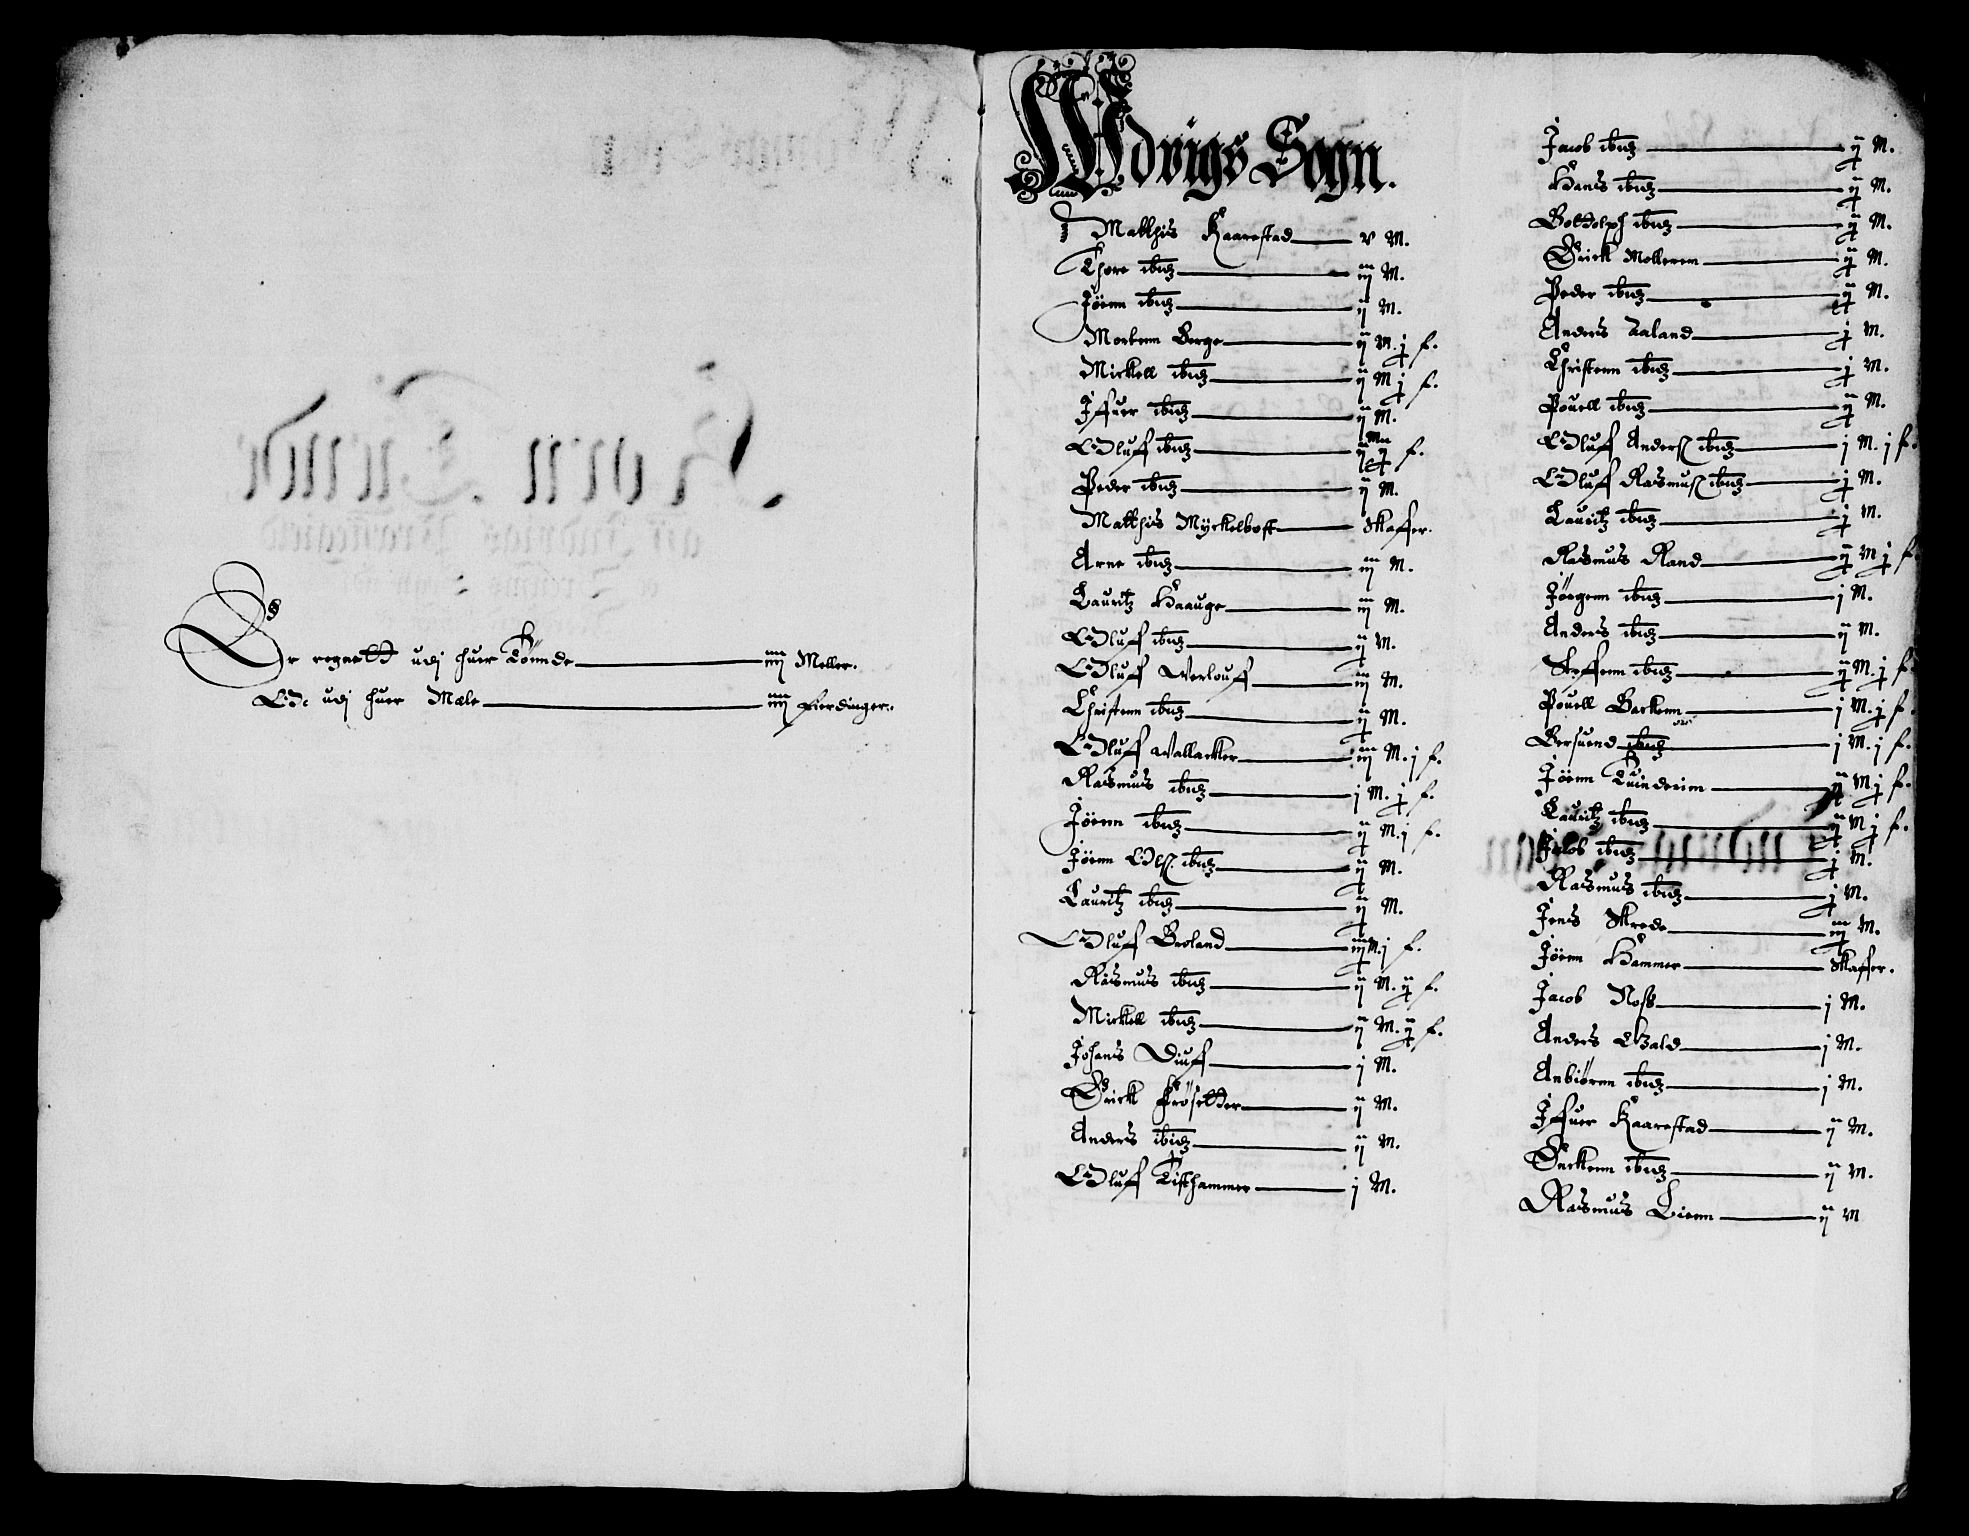 Er regnett udj huer Tönnde — iiij Meller.
Oc udj huer Mæle — iiij Fierdinger.
Wdvigs Sogn.
Matthis Kaarestad — v M.
Thore ibid — iij M.
Jöenn ibid — ij M.
Mortenn Berge — ij M. j f.
Mickell ibid — ij M j f.
Iffuer ibid — ij M.
Oluff ibid — ij M j f.
Peder ibid — ij M.
Matthis Myckelbost — Skaffer.
Arne ibid — iij M.
Lauritz Haauge — iij M.
Oluff ibid — ij M.
Oluff Verlouff — iij M.
Christenn ibid — ij M.
Oluff Wallacker — iij M. j f.
Rasmus ibid — j M. j f.
Jöenn ibid — ij M. j f.
Jöenn Ols. ibid — ij M.
Lauritz ibid — ij M.
Oluff Broland — iiij M. j f.
Rasmus ibid — ij M. ij f.
Mickell ibid — ij M. ij f.
Johans Diuff — j M.
Erick Frösetter — ij M.
Anders ibid — ij M.
Oluff Kisthammer — j M.
Jacob ibid — ij M.
Hans ibid — ij M.
Bottolph ibid — ij M.
Erick Mollerem — ij M.
Peder ibid — ij M.
Anders Aaland — j M.
Christenn ibid — j M.
Pouell ibid — ij M.
Oluff Anders ibid — j M. j f.
Oluff Rasmus ibid — j M.
Lauritz ibid — j M.
Rasmus Rand — ij M j f.
Jörgenn ibid — j M.
Anders ibid — ij M.
Steffenn ibid — ij M. j f.
Pouell Backenn — j M. j f.
Bersuend ibid — j M. j f.
Jöenn Quinderim — ij M j f.
Lauritz ibid — ij M j f.
Jacob ibid — j M.
Rasmus ibid — j M.
Jens Skrede — iij M.
Jöenn Hammer — Skaffer.
Jacob Noss — j M.
Anders Wald — j M.
Anbiörnn ibid — j M.
Iffuer Kaarestad — ij M.
Enckenn ibid — ij M.
Rasmus Lienn — ij M